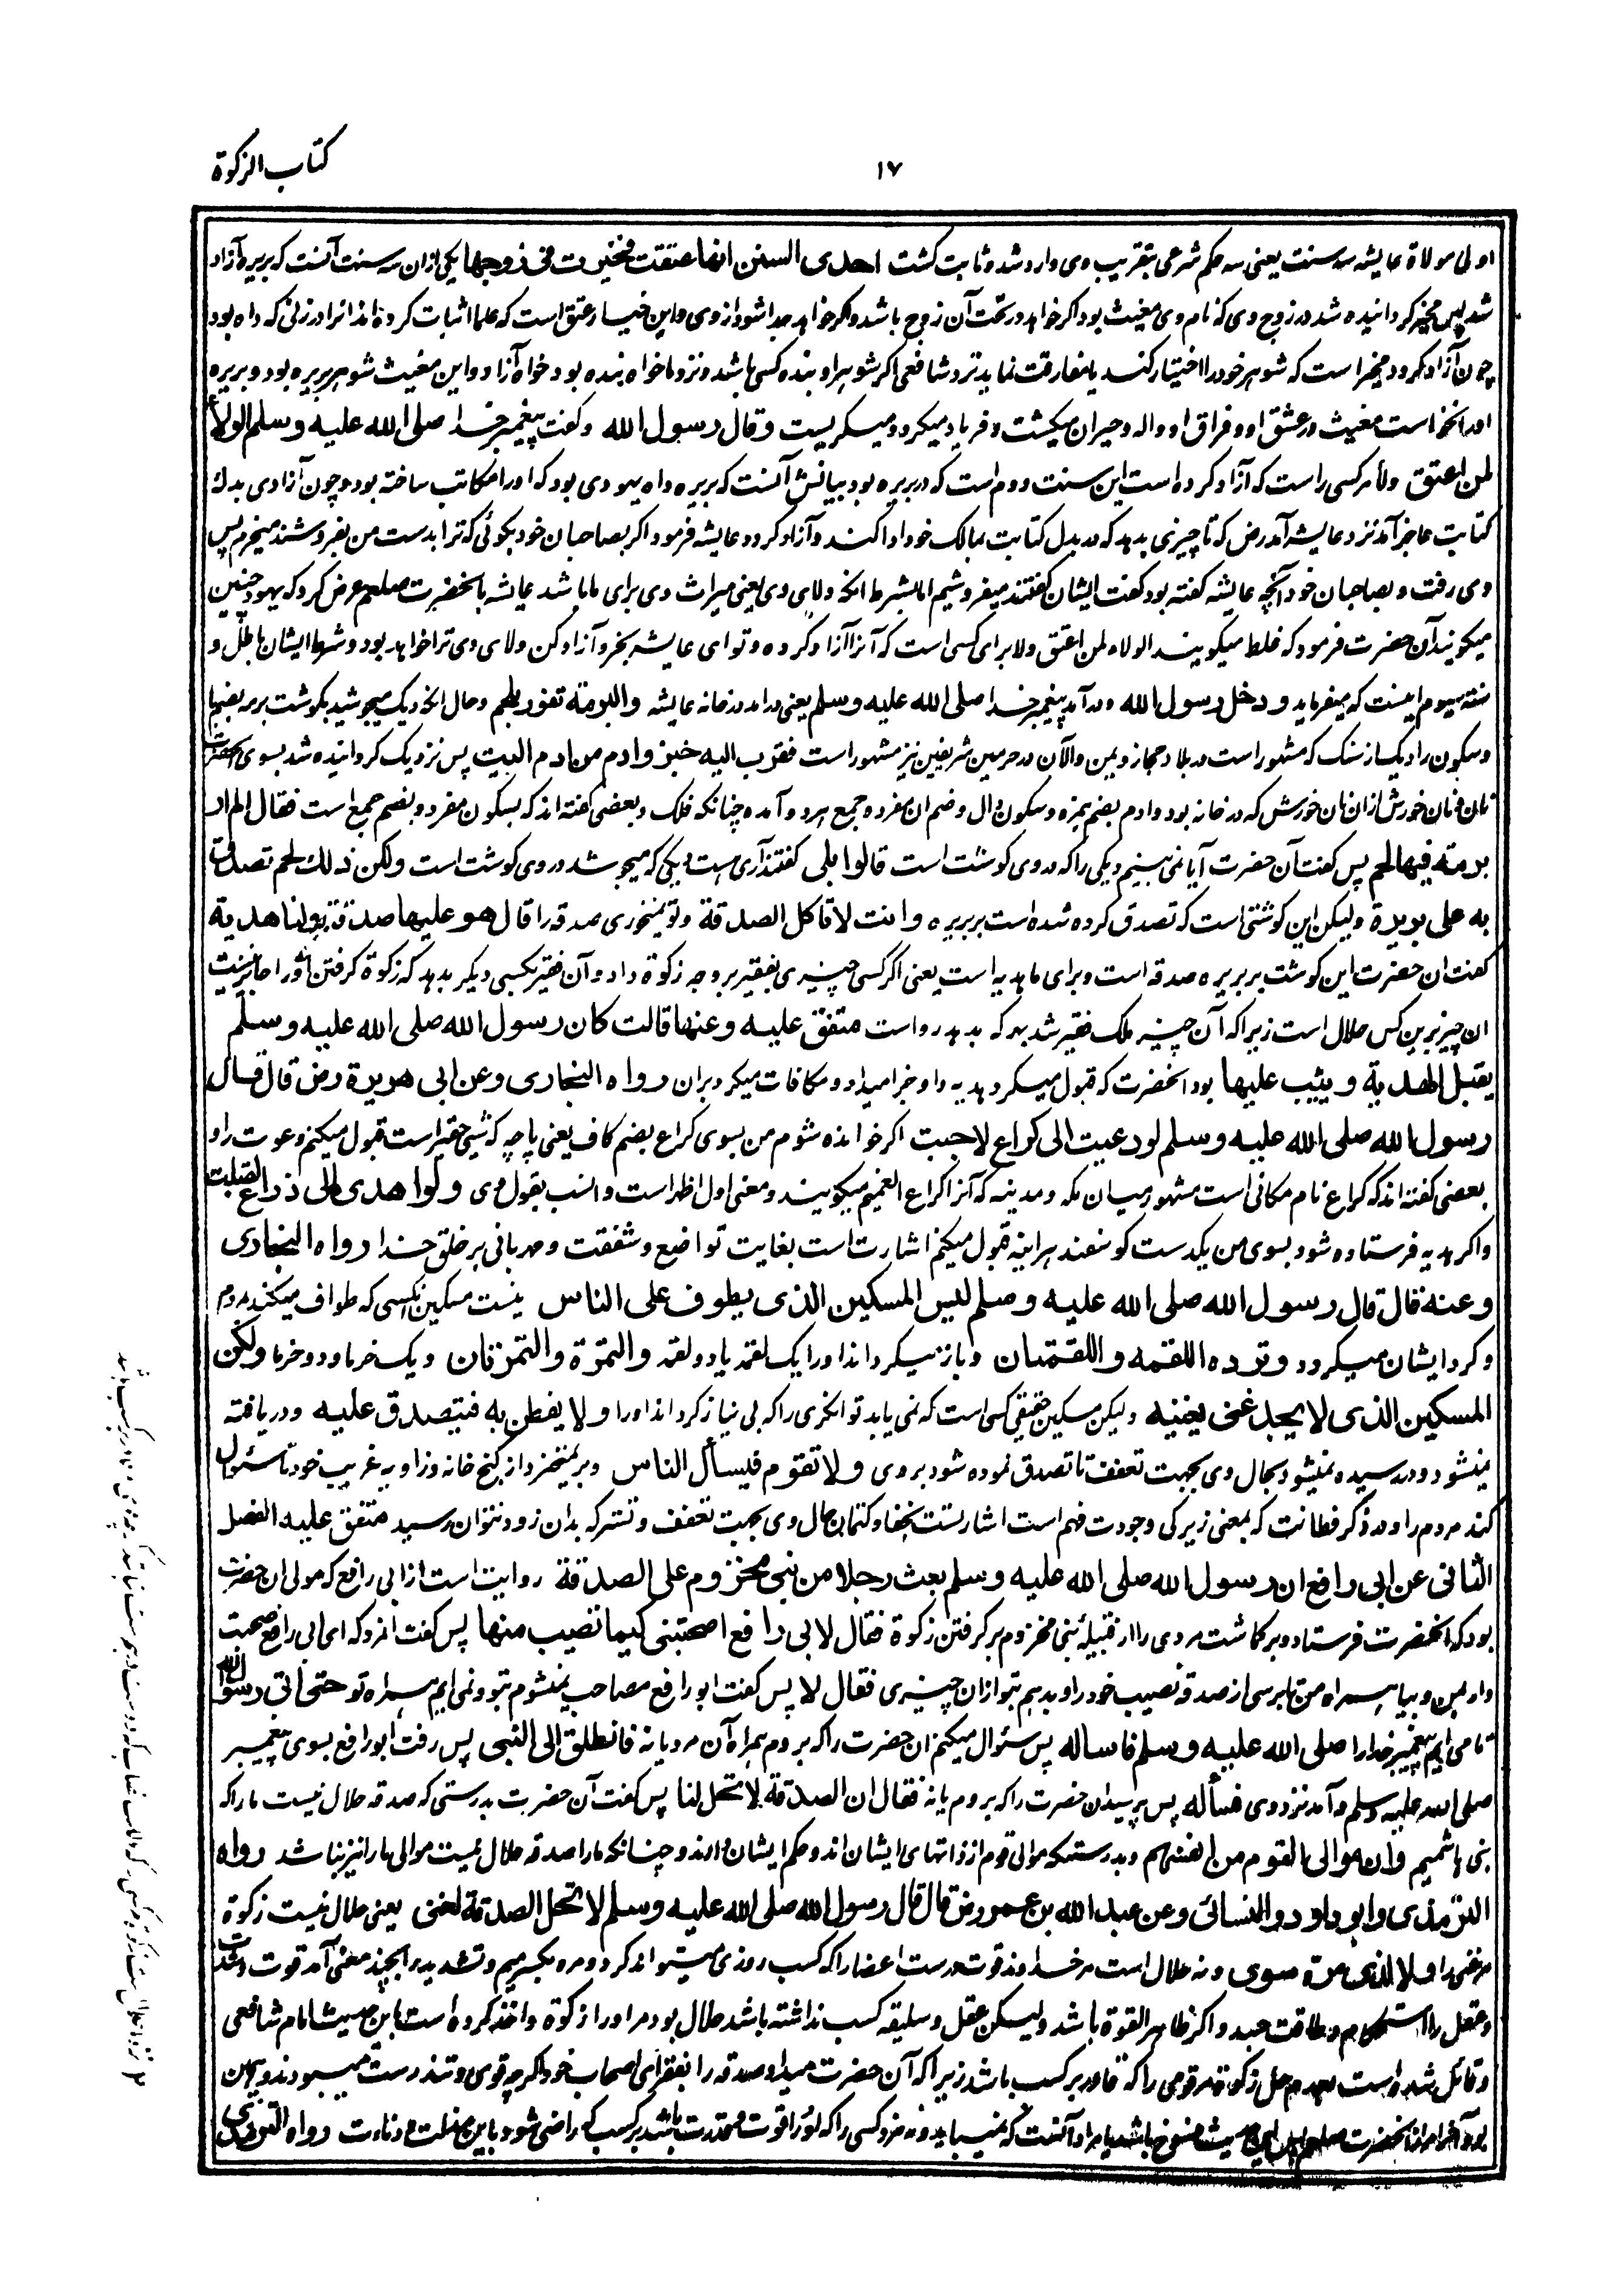 کتاب الزکوة
۱۷
او لی مولاة عایشه سه سنت یعنی سه حکم شرعی بتقریب وی وارد شد و ثابت کشت احدی السنن انها عتقت فخیرت فی زوجها یکی ازان سه سنت آنست که بریره آزاد
شد پس مخیر کردانیده شد در زوج وی که نام وی مغیث بود اکر خواهد در تحت آن زوج باشد و اکر خواهد جدا شود از وی و این خیار عتق است که علما اثبات کرده اند انرا در زنی که داه بود
چون آزاد کرود مخیر است که شوهر خود را اختیار کند یا مفارقت نماید نزد شافعی اکر شوهر او بنده کسی باشد و نزد ما خواه بنده بود خواه آزاد و این مغیث شوهر بریره بود و بریره
او را نخواست مغیث در عشق او و فراق او واله و حیران میکشت و فریاد میکرد و میکریست وقال رسول الله وکفت پیغمبر خدا صلی الله علیه وسلم الولأ
لمن اعتق ولأ مر کسی راست که آزاد کرده است این سنت دوم است که در بریره بود بیانش آنست که بریره داه یهودی بود که او را مکاتب ساخته بود و چون آزادی بدل
کتابت عاجز آمد نزد عایشه آمد رض که تا چیزی بدهد که در بدل کتابت بمالک خود ادا کند و آزاد کرود عایشه فرمود اکر بصاحبان خود بکوئی که ترا بدست من بفروشند میخرم پس
وی رفت و بصاحبان خود آنچه عایشه کفته بود کفت ایشان کفتند میفروشیم اما بشرط انکه ولای وی یعنی میراث وی برای ما باشد عایشه بانحضرت صلعم عرض کرد که یهود چنین
میکویند آن حضرت فرمود که غلط میکویند الولاء لمن اعتق ولا برای کسی است که آنرا آزاد کرده و تو ای عایشه بخر و آزاد کن ولای وی ترا خواهد بود و شرط ایشان باطل و
سنة سیوم اینست که میفرماید و دخل رسول الله و در آمد پیغمبر خدا صلی الله علیه وسلم یعنی در امد در خانه عایشه والبرمة تفور بلحم و حال انکه دیک میجوشید بکوشت برمه بضم با
وسکون را دیک از سنک که مشهور است در بلاد حجاز و یمن و الآن در حرمین شریفین نیز مشهور است فقرب الیه خبز وادم من ادم البیت پس نزدیک کردانیده شد بسوی انحضرت
نان و نان خورش از ان نان خورش که در خانه بود و ادم بضم همزه و سکون دال و ضم ان مفرد و جمع هر دو آمده چنانکه فلک و بعضی کفته اند که بسکون مفرد و بضم جمع است فقال الم ار
برمة فیها لحم پس کفت آن حضرت آیا نمی بینم دیکی را که در وی کوشت است قالوا بلی کفتند آری هست دیکی که میجوشد در وی کوشت است ولکن ذلك لحم تصدق
به علی بریرة ولیکن این کوشتی است که تصدق کرده شده است بر بریره وانت لا تاکل الصدقة و تو نمیخوری صدقه را قال هو علیها صدقة ولنا هدیة
کفت ان حضرت این کوشت بر بریره صدقه است و برای ما هدیه است یعنی اکر کسی چیزی بفقیر بروجه زکوة داد و آن فقیر بکسی دیکر بدهد که زکوة کرفتن او را جائز نیست
ان چیز برین کس حلال است زیرا که آن چیز ملک فقیر شد بهر که بدهد رواست متفق علیه وعنها قالت کان رسول الله صلی الله علیه وسلم
یقبل الهدیة ویثیب علیها بود انحضرت که قبول میکرد هدیه را و جزا میداد و مکافات میکرد بران رواه البخاری وعن ابی هریرة رض قال قال
رسول الله صلی الله علیه وسلم لو دعیت الی کراع لاجبت اکر خوانده شوم من بسوی کراع بضم کاف یعنی پاچه که شئی حقیر است قبول میکنم دعوت را و
بعضی کفته اند که کراع نام مکانی است مشهور میان مکه و مدینه که آنرا کراع الغمیم میکویند و معنی اول اظهر است و انسب بقول وی ولو اهدی الی ذراع لقبلت
و اکر هدیه فرستاده شود بسوی من یکدست کوسفند هر اینه قبول میکنم اشارت است بغایت تواضع و شفقت و مهربانی بر خلق خدا رواه البخاری
وعنه قال قال رسول الله صلی الله علیه وسلم لیس المسکین الذی یطوف علی الناس نیست مسکین انکسی که طواف میکند مردم
و کرد ایشان میکردد وترده اللقمه واللقمتان و باز میکرداند او را یک لقمه یا دو لقمه والتمرة والتمرتان و یک خرما و دو خرما ولکن
المسکین الذی لا یجد غنی یغنیه ولیکن مسکین حقیقی کسی است که نمی یابد توانکری را که بی نیاز کرداند او را ولا یفطن به فیتصدق علیه و دریافته
نمیشود و در رسیده نمیشود بحال وی بجهت تعفف تا تصدق نموده شود بر وی ولا تقوم فیسأل الناس و بر نمیخیزد از کنج خانه و زاویه غریب خود تا سئوال
کند مردم را و در ذکر فطانت که بمعنی زیرکی و جودت فهم است اشارتست بخفا و کتمان حال وی بجهت تعفف و تستر که بدان زود نتوان رسید متفق علیه الفصل
الثانی عن ابی رافع ان رسول الله صلی الله علیه وسلم بعث رجلا من بنی مخزوم علی الصدقة روایت است از ابی رافع که مولی ان حضرت
بود که انحضرت فرستاد و بر کماشت مردی را از قبیلهٔ بنی مخزوم بر کرفتن زکوة فقال لابی رافع اصحبنی کیما تصیب منها پس کفت انمرد که ای ابی رافع صحبت
دار بمن و بیا همراه من تا برسی از صدقه نصیب خود را و بدهم بتو ازان چیزی فقال لا پس کفت ابو رافع مصاحب نمیشوم بتو و نمی ایم همراه تو حتی اتی رسول الله
تا می ایم پیغمبر خدا را صلی الله علیه وسلم فاساله پس سئوال میکنم ان حضرت را که بروم همراه آن مرد یا نه فانطلق الی النبی پس رفت ابو رافع بسوی پیغمبر
صلی الله علیه وسلم و آمد نزد وی فسأله پس پرسید ان حضرت را که بروم یا نه فقال ان الصدقة لا تحل لنا پس کفت آن حضرت بدرستی که صدقه حلال نیست ما را که
بنی هاشمیم وان موالی القوم من انفسهم و بدرستیکه موالی قوم از ذاتهای ایشان اند و حکم ایشان دارند و چنانکه ما را صدقه حلال نیست موالی ما را نیز نباشد رواه
الترمذی وابو داود والنسائی وعن عبد الله بن عمرو رض قال قال رسول الله صلی الله علیه وسلم لا تحل الصدقة لغنی یعنی حلال نیست زکوة
مر غنی را ولا لذی مرة سوی و نه حلال است مر خداوند قوت درست اعضا را که کسب روزی میتواند کرد و مره بکسر میم و تشدید را بچند معنی آمد قوت و شدت
و عقل را استحکام و طاقت جسد و اکر ظاهر القوة باشد ولیکن عقل و سلیقه کسب نداشته باشد حلال بود مر او را زکوة و اخذ کرده است باین حدیث امام شافعی
و قائل شده است بعدم حل زکوة مر قومی را که قادر بر کسب باشد زیرا که آن حضرت میداد صدقه را بفقرای اصحاب خود اکرچه قوی و تندرست میبودند و همین
بود آخر امر از انحضرت صلعم پس این حدیث منسوخ باشد یا مراد آنست که نمیباید و نه سزد کسی را که او را قوت و قدرت باشد بر کسب که راضی شود باین مذلت و دناءت رواه الترمذی